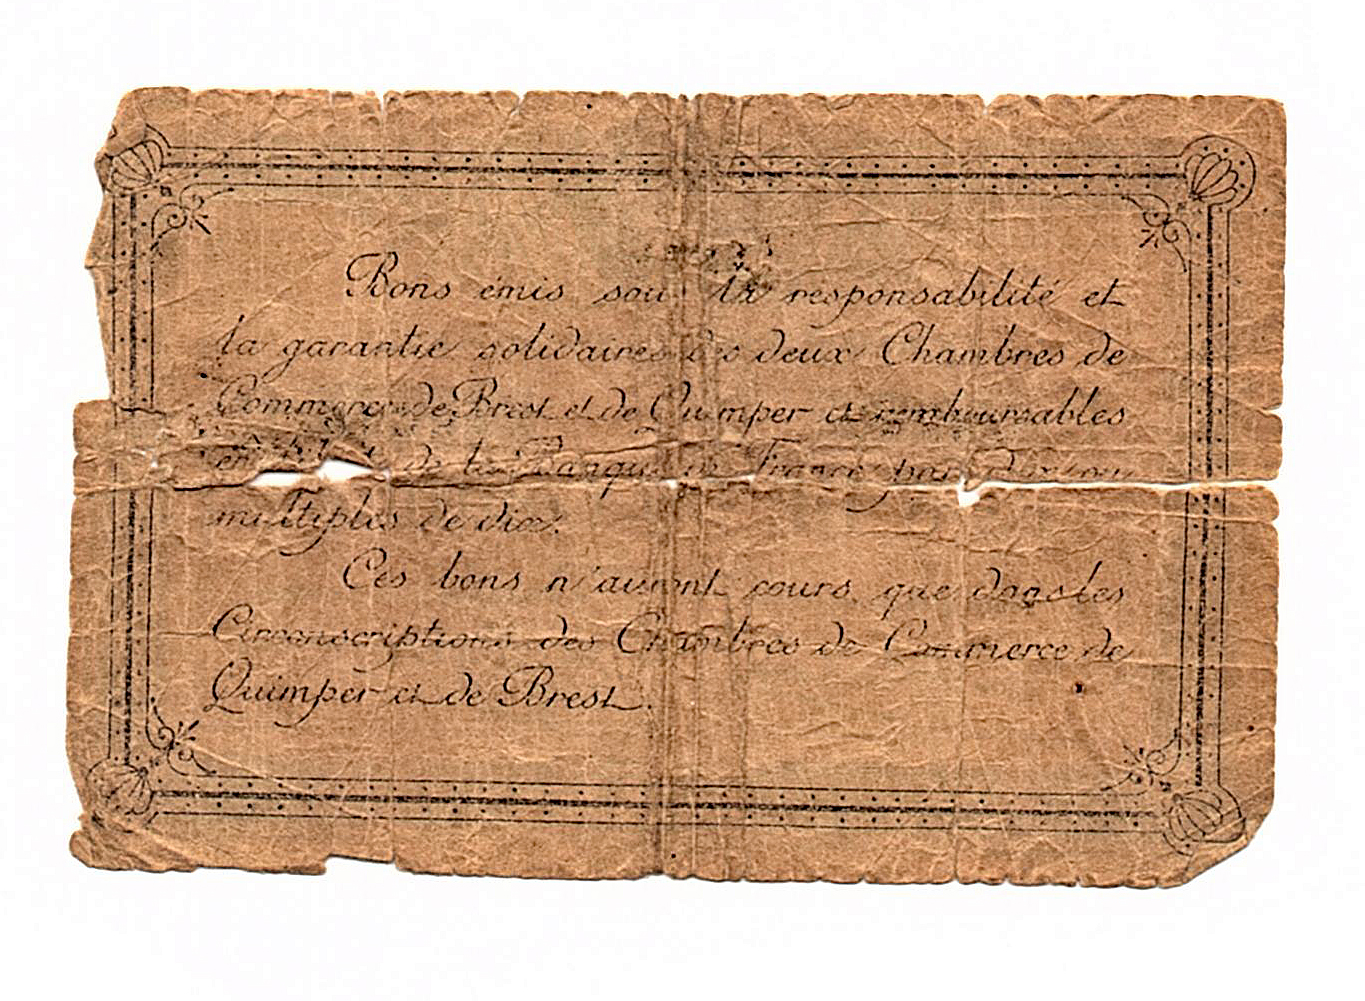 Bons émis sous la responsabilité et
la garantie solidaires des deux Chambres de
Commerce de Brest et de Quimper et remboursables
en de la Banque de France par
multiples de dix.
Ces bons n'auront cours que dans les
Circonscriptions des Chambres de Commerce de
Quimper et de Brest.